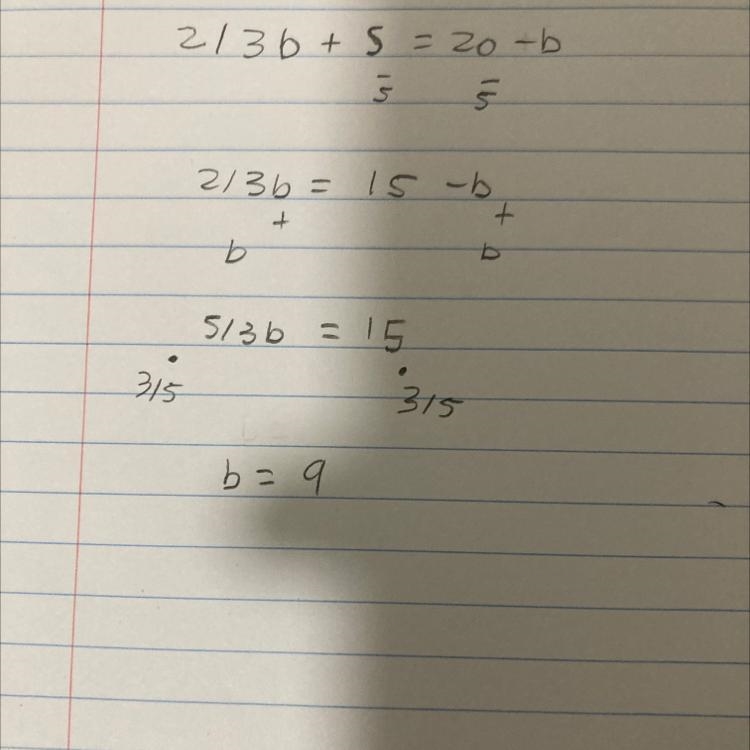 2/3b + 5 = 20 - b
- -
5 5
2/3b = 15 - b
+ +
b b
5/3b = 15
· ·
3/5 3/5
b = 9